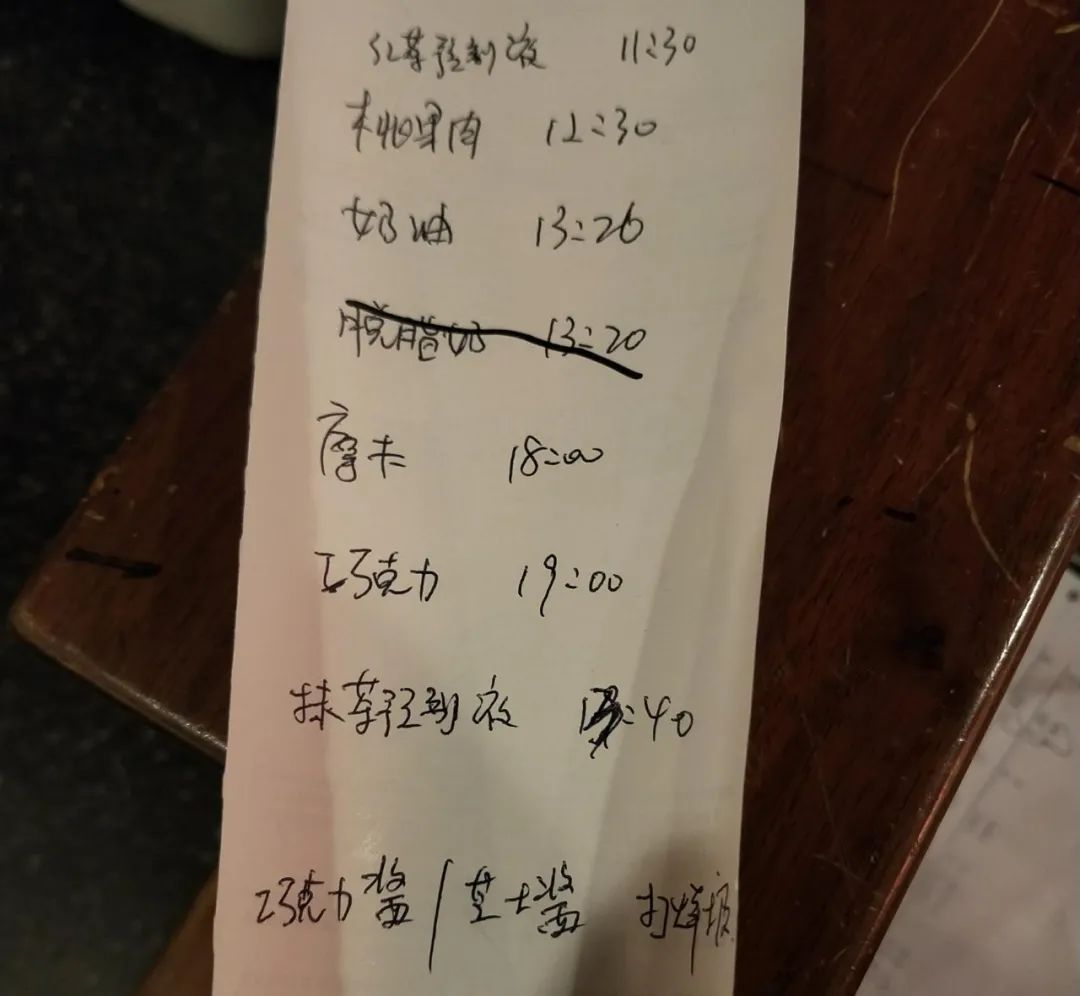 红茶轻制液 11:30
桃果肉 12:30
奶油 13:26
脱脂奶 13:20
摩卡 18:00
巧克力 19:00
抹茶轻制液 :40
巧克力酱/芝士酱 打烊报